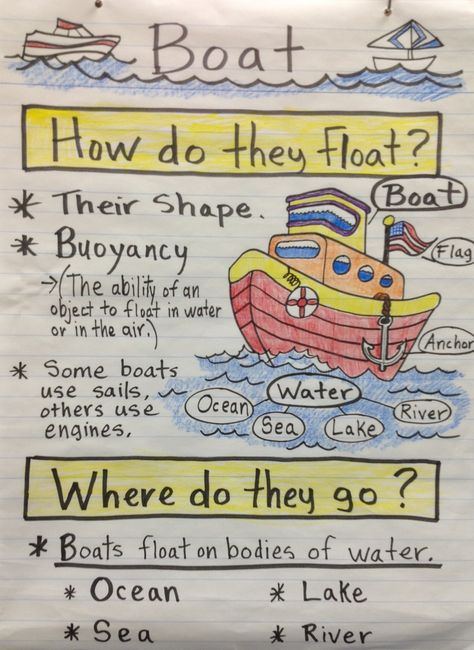 Boat
How do they float?
* Their Shape.
* Buoyancy
→(The ability of an
object to float in water
or in the air.)
* Some boats
use sails,
others use
engines.
Boat
Flag
Anchor
Water
Ocean
Sea
Lake
River
Where do they go?
* Boats float on bodies of water.
* Ocean
* Lake
* Sea
* River